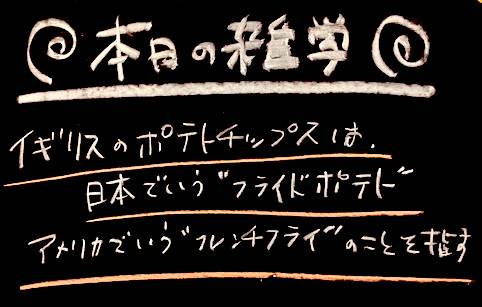 本日の雑学
イギリスのポテトチップスは、
日本でいう"フライドポテト"
アメリカでいう"フレンチフライ"のことを指す